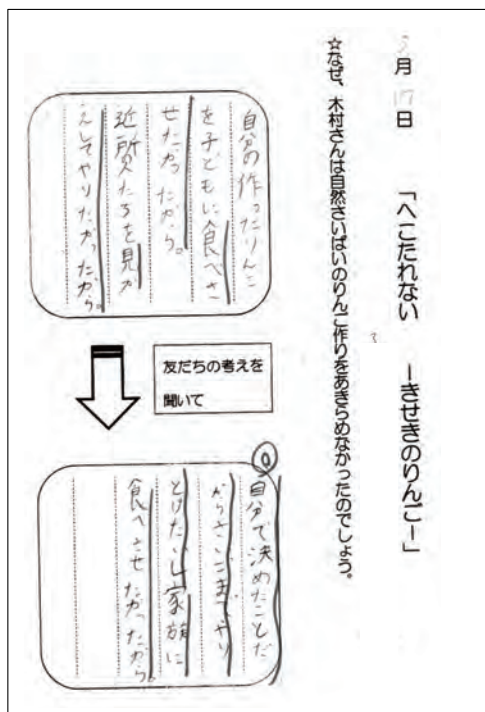 月17日 「へこたれない ーきせきのりんごー」
☆なぜ、木村さんは自然さいばいのりんご作りをあきらめなかったのでしょう。
自分の作ったりんご
を子どもに食べさ
せたかったから。
近所の人たちを見か
えしてやりたかったから。
友だちの考えを
聞いて
自分で決めたことだ
からさいごまでやり
とげたいし家族に
食べさせたかったから。